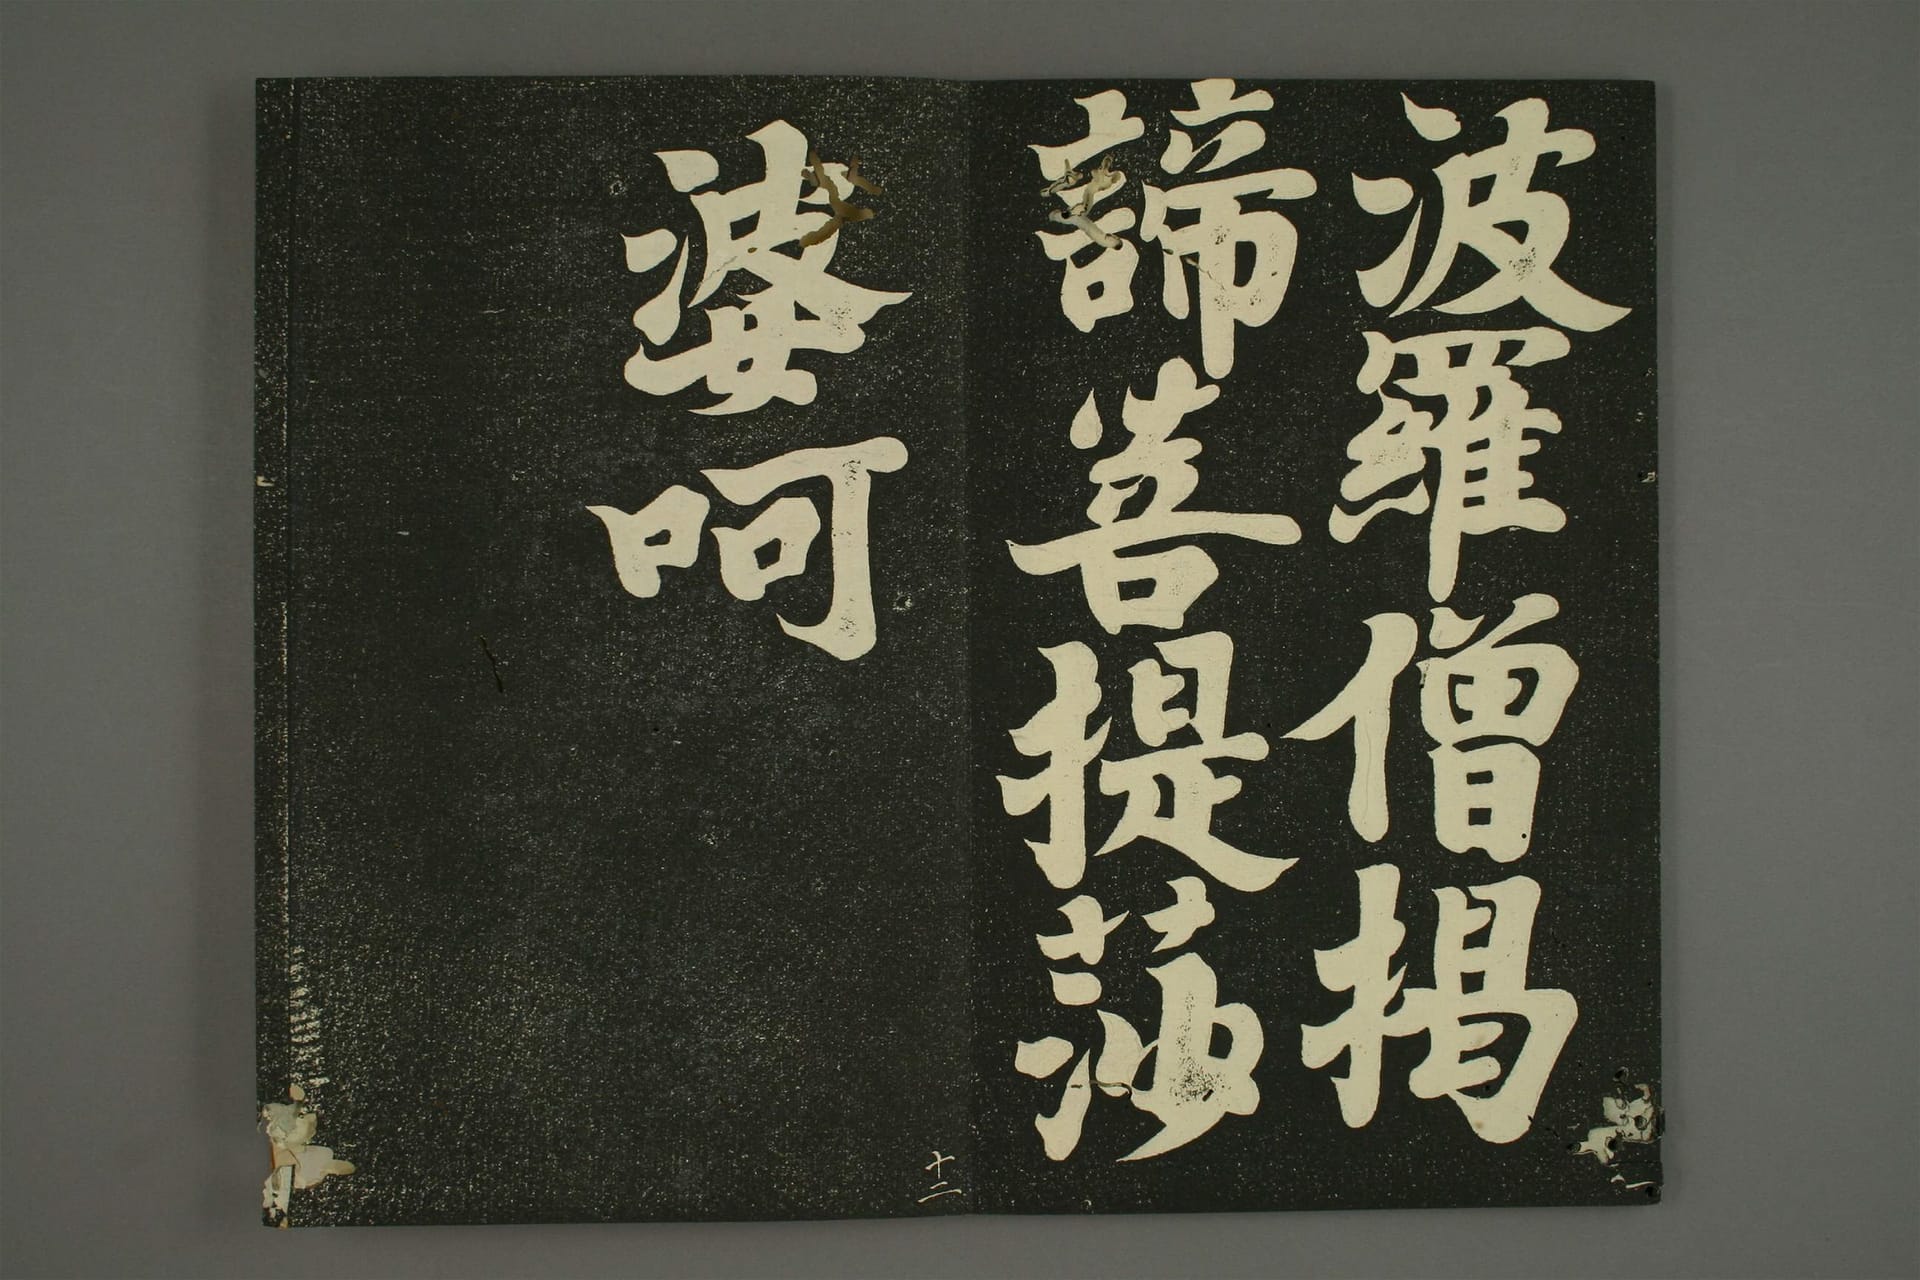 波羅僧揭
諦菩提莎
婆呵
十二